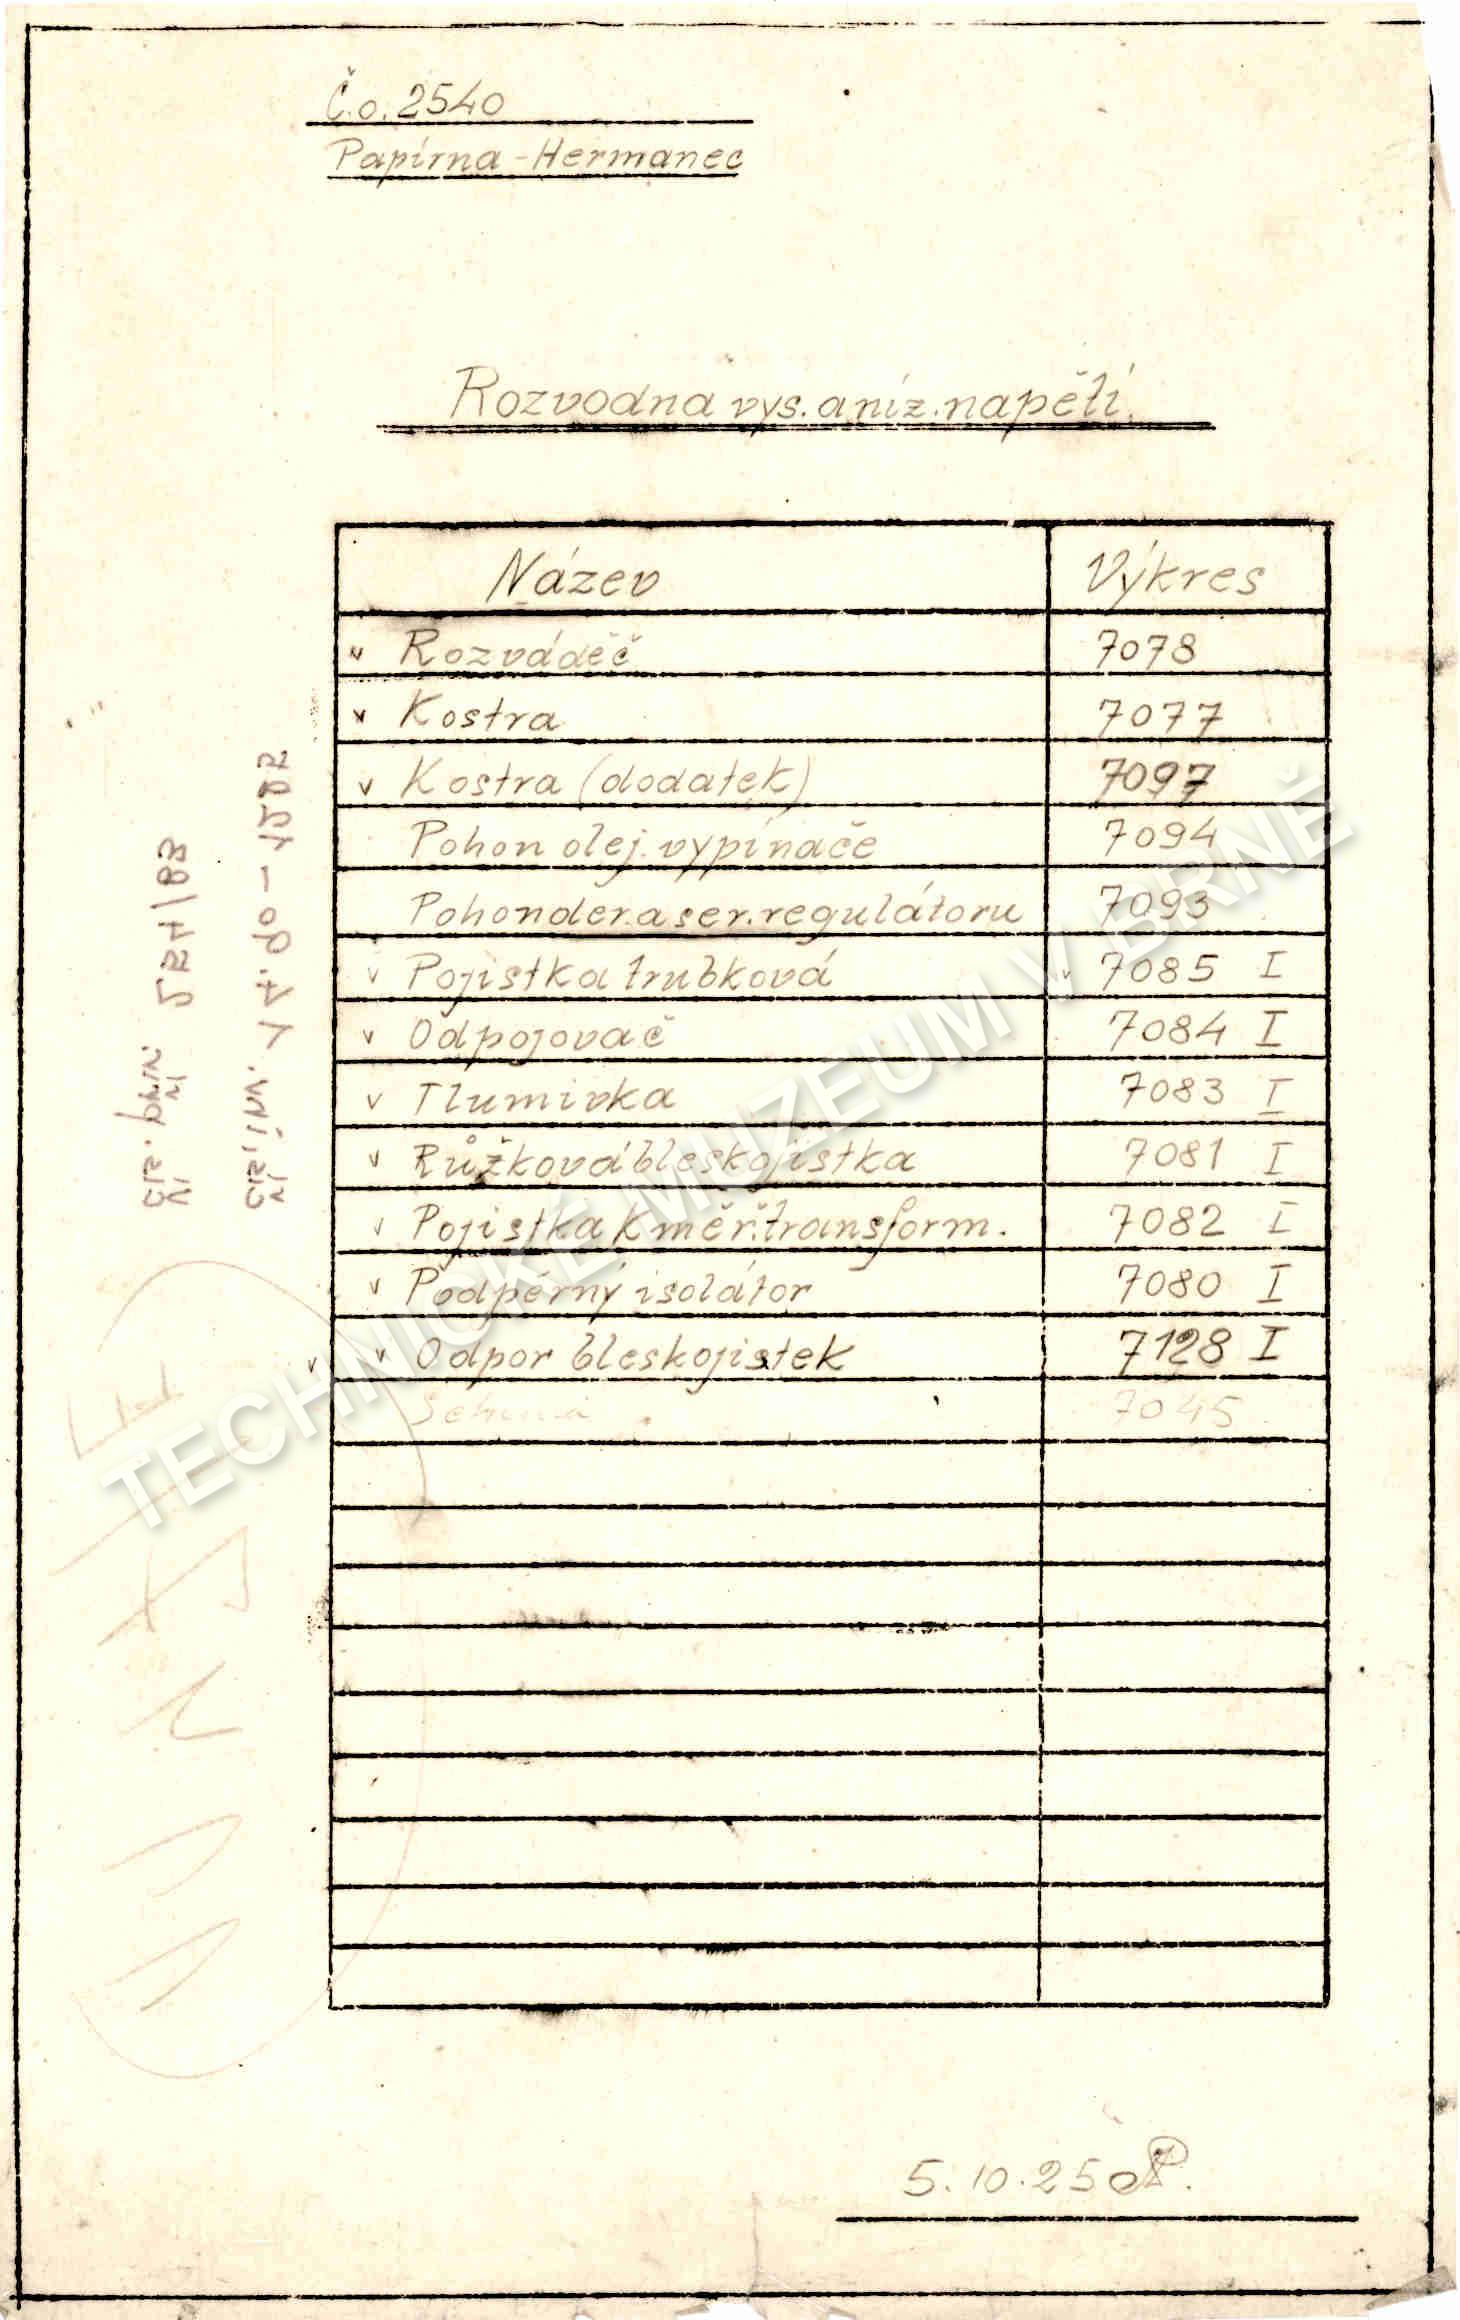 Č.o. 2540
Papírna - Hermanec
Rozvodna vys. a níz. napětí.
Název Výkres
v Rozváděč 7078
v Kostra 7077
v Kostra (dodatek) 7097
Pohon olej. vypínače 7094
Pohon der. a ser. regulátoru 7093
v Pojistka trubková v 7085 I
v Odpojovač 7084 I
v Tlumivka 7083 I
v Růžková bleskojistka 7081 I
v Pojistka k měř. transform. 7082 I
v Podpěrný isolátor 7080 I
v v Odpor bleskojistek 7128 I
7045
5.10.25
čís. přír.
čís. inv.
TECHNICKÉ MUZEUM V BRNĚ